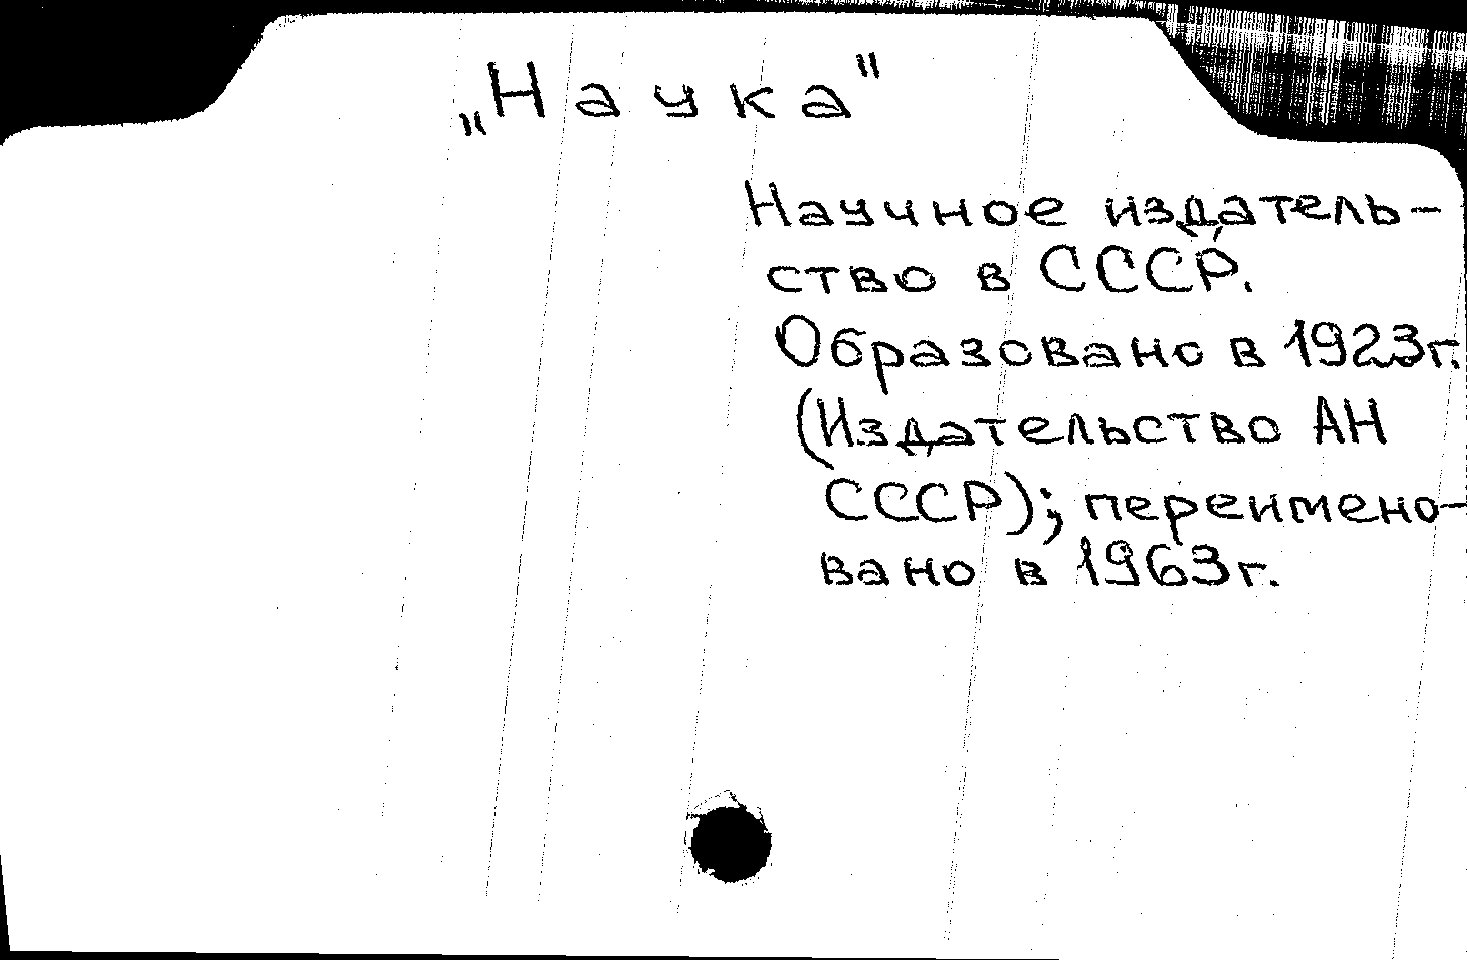 „Наука"
Научное издатель-
ство в СССР.
Образовано в 1923г.
(Издательство АН
СССР); переимено-
вано в 1963г.